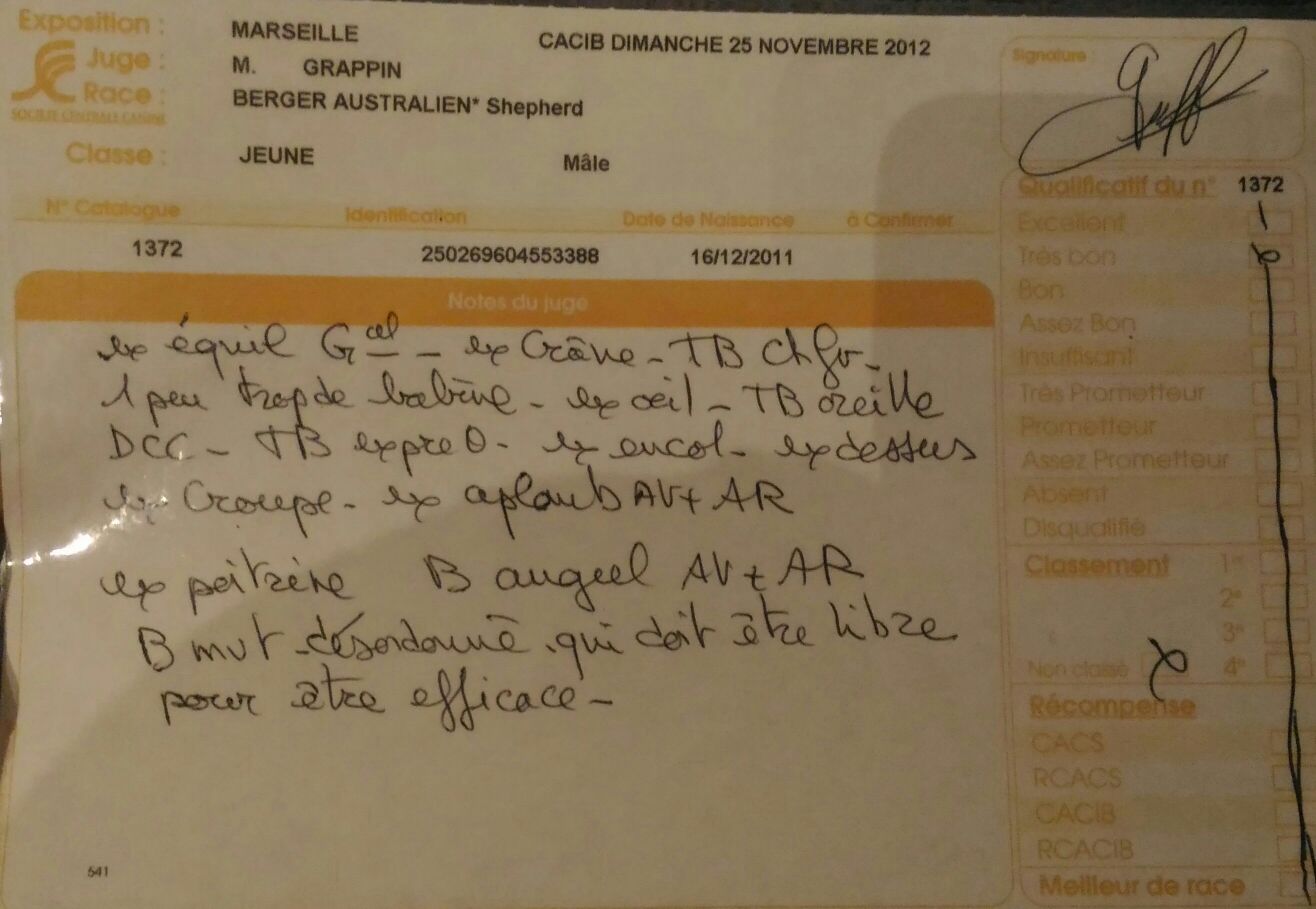 Exposition : MARSEILLE CACIB DIMANCHE 25 NOVEMBRE 2012
Juge : M. GRAPPIN
Race : BERGER AUSTRALIEN* Shepherd
SOCIETE CENTRALE CANINE
Classe : JEUNE Mâle
Signature :
N° Catalogue Identification Date de Naissance à Confirmer
1372 250269604553388 16/12/2011
Notes du juge
ex équil Gal - ex Crâne - TB Chfr -
1 peu trop de babine - ex oeil - TB oreille
DCC - TB expre0 - ex encol - ex dessus
ex Croupe - ex aplomb AV + AR
ex poitrine B angul AV + AR
B mvt désordonné qui doit être libre
pour être efficace -
541
Qualificatif du n° 1372
Excellent
Très bon
Bon
Assez Bon
Insuffisant
Très Prometteur
Prometteur
Assez Prometteur
Absent
Disqualifié
Classement 1er
2e
3e
Non classé 4e
Récompense
CACS
RCACS
CACIB
RCACIB
Meilleur de race